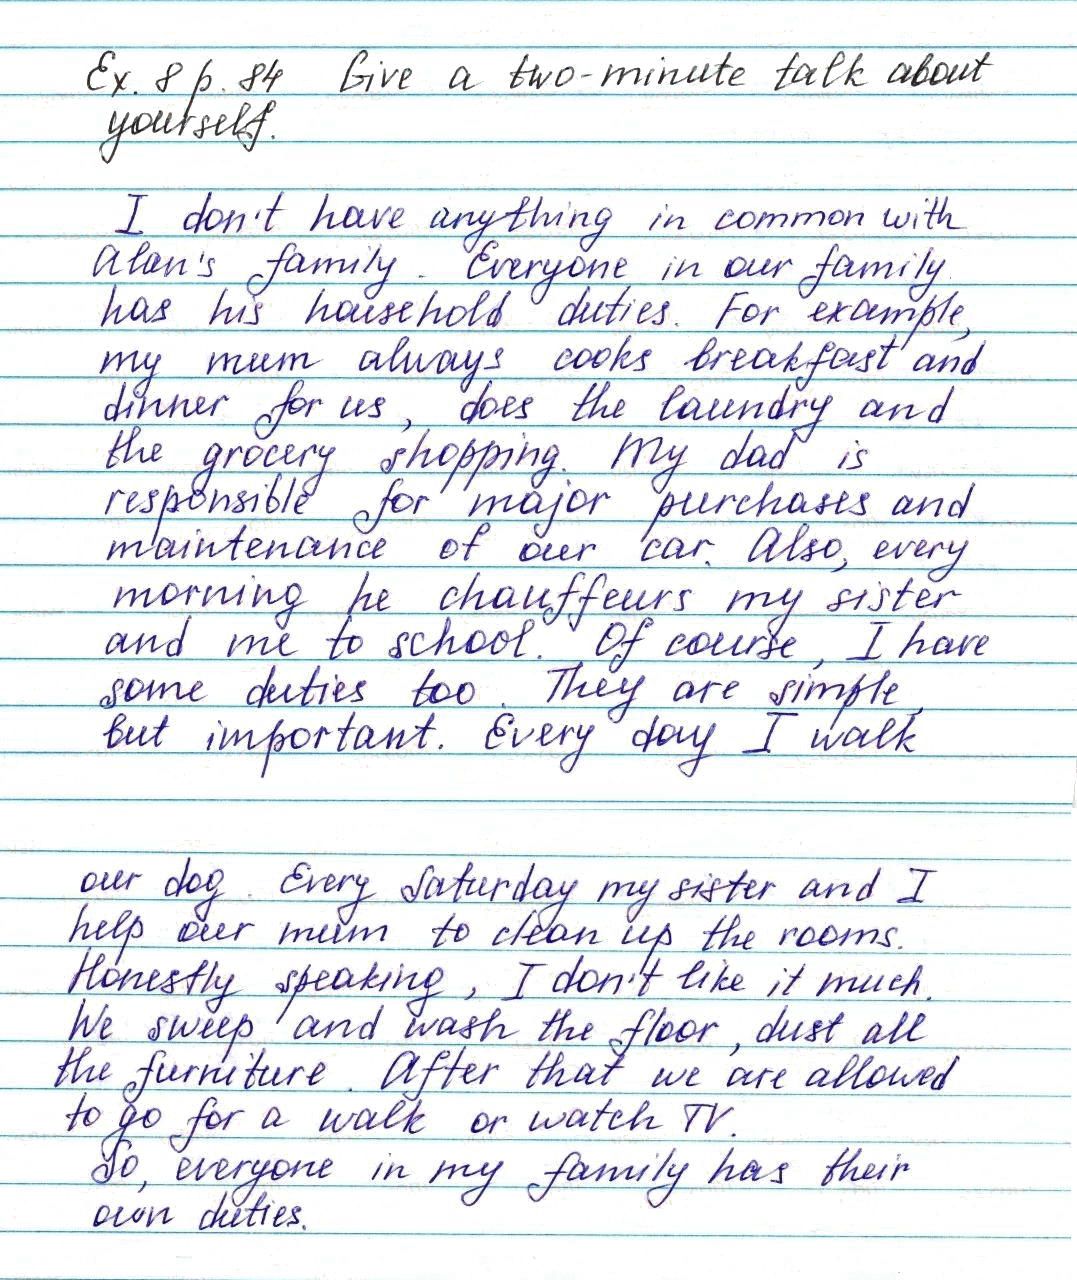 Ex. 8 p. 84 Give a two-minute talk about
yourself.
I don't have anything in common with
Alan's family. Everyone in our family
has his household duties. For example,
my mum always cooks breakfast and
dinner for us, does the laundry and
the grocery shopping. My dad is
responsible for major purchases and
maintenance of our car. Also, every
morning he chauffeurs my sister
and me to school. Of course, I have
some duties too. They are simple,
but important. Every day I walk
our dog. Every Saturday my sister and I
help our mum to clean up the rooms.
Honestly speaking, I don't like it much.
We sweep and wash the floor, dust all
the furniture. After that we are allowed
to go for a walk or watch TV.
So, everyone in my family has their
own duties.